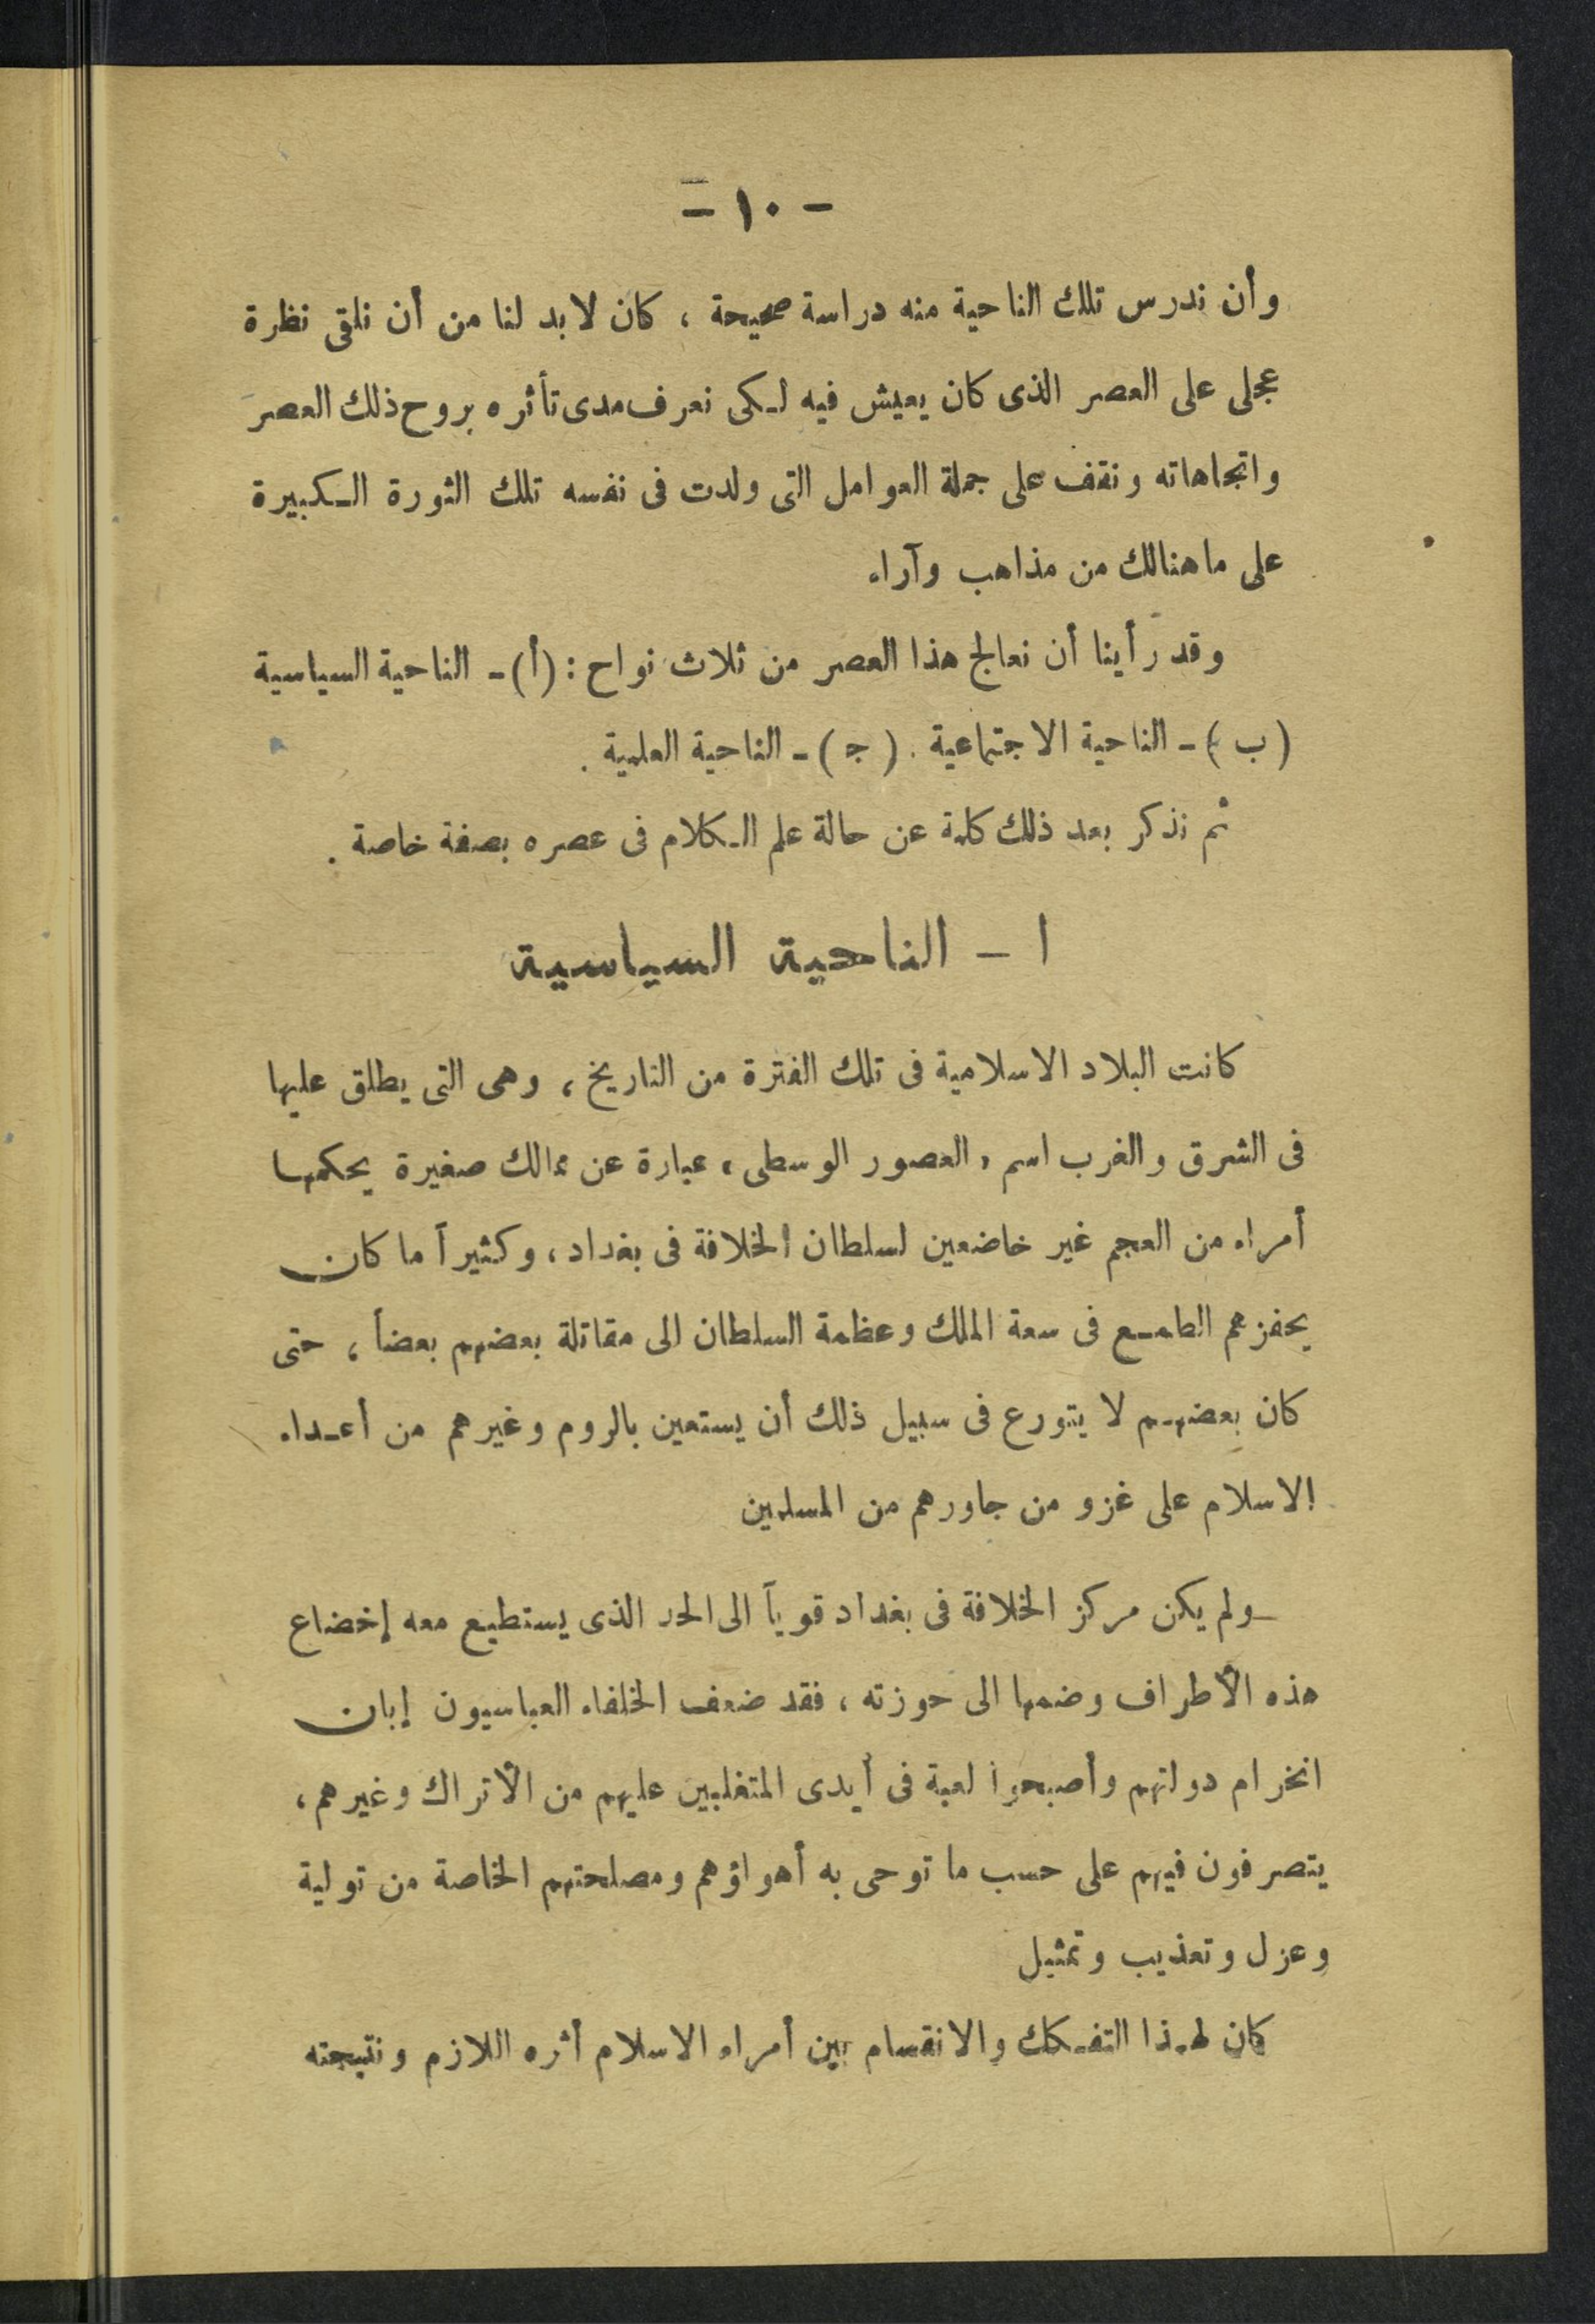 - ١٠ -
وأن ندرس تلك الناحية منه دراسة صحيحة ، كان لا بد لنا من أن نلقى نظرة
عجلى على العصر الذى كان يعيش فيه لـكى نعرف مدى تأثره بروح ذلك العصر
واتجاهاته ونقف على جملة العوامل التى ولدت فى نفسه تلك الثورة الـكبيرة
على ما هنالك من مذاهب وآراء
وقد رأينا أن نعالج هذا العصر من ثلاث نواح : (أ) - الناحية السياسية
(ب) - الناحية الاجتماعية . (جـ) - الناحية العلمية .
ثم نذكر بعد ذلك كلمة عن حالة علم الـكلام فى عصره بصفة خاصة .
ا - الناحية السياسية
كانت البلاد الاسلامية فى تلك الفترة من التاريخ ، وهى التى يطلق عليها
فى الشرق والغرب اسم « العصور الوسطى » عبارة عن ممالك صغيرة يحكمها
أمراء من العجم غير خاضعين لسلطان الخلافة فى بغداد ، وكثيراً ما كان
يحفزهم الطمـع فى سعة الملك وعظمة السلطان الى مقاتلة بعضهم بعضاً ، حتى
كان بعضهـم لا يتورع فى سبيل ذلك أن يستعين بالروم وغيرهم من أعـداء
الاسلام على غزو من جاورهم من المسلمين
ولم يكن مركز الخلافة فى بغداد قوياً الى الحد الذى يستطيع معه إخضاع
هذه الأطراف وضمها الى حوزته ، فقد ضعف الخلفاء العباسيون إبان
انخرام دولتهم وأصبحوا لعبة فى أيدى المتغلبين عليهم من الأتراك وغيرهم ،
يتصرفون فيهم على حسب ما توحى به أهواؤهم ومصلحتهم الخاصة من تولية
وعزل وتعذيب وتمثيل
كان لهـذا التفـكك والانقسام بين أمراء الاسلام أثره اللازم ونتيجته